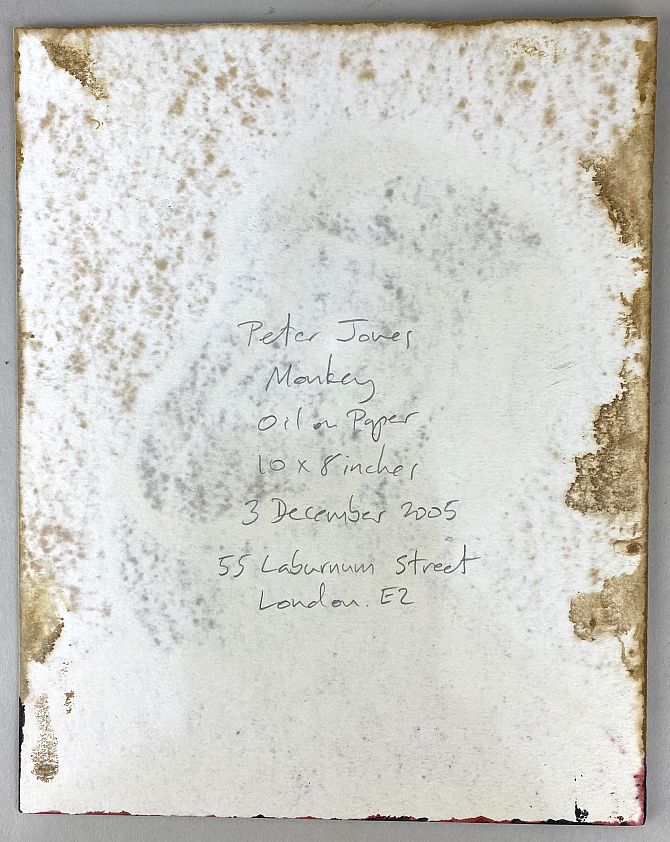 Peter Jones
Monkey
Oil on Paper
10 x 8 inches
3 December 2005
55 Laburnum Street
London. E2